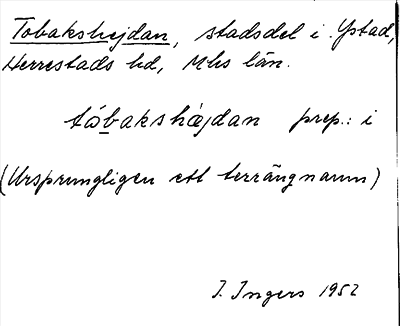 Tobakshejdan, stadsdel i Ystad,
Herrestads hd, Mhs län.
tóbakshæjdan prep.: i
(Ursprungligen ett terrängnamn)
I. Ingers 1952